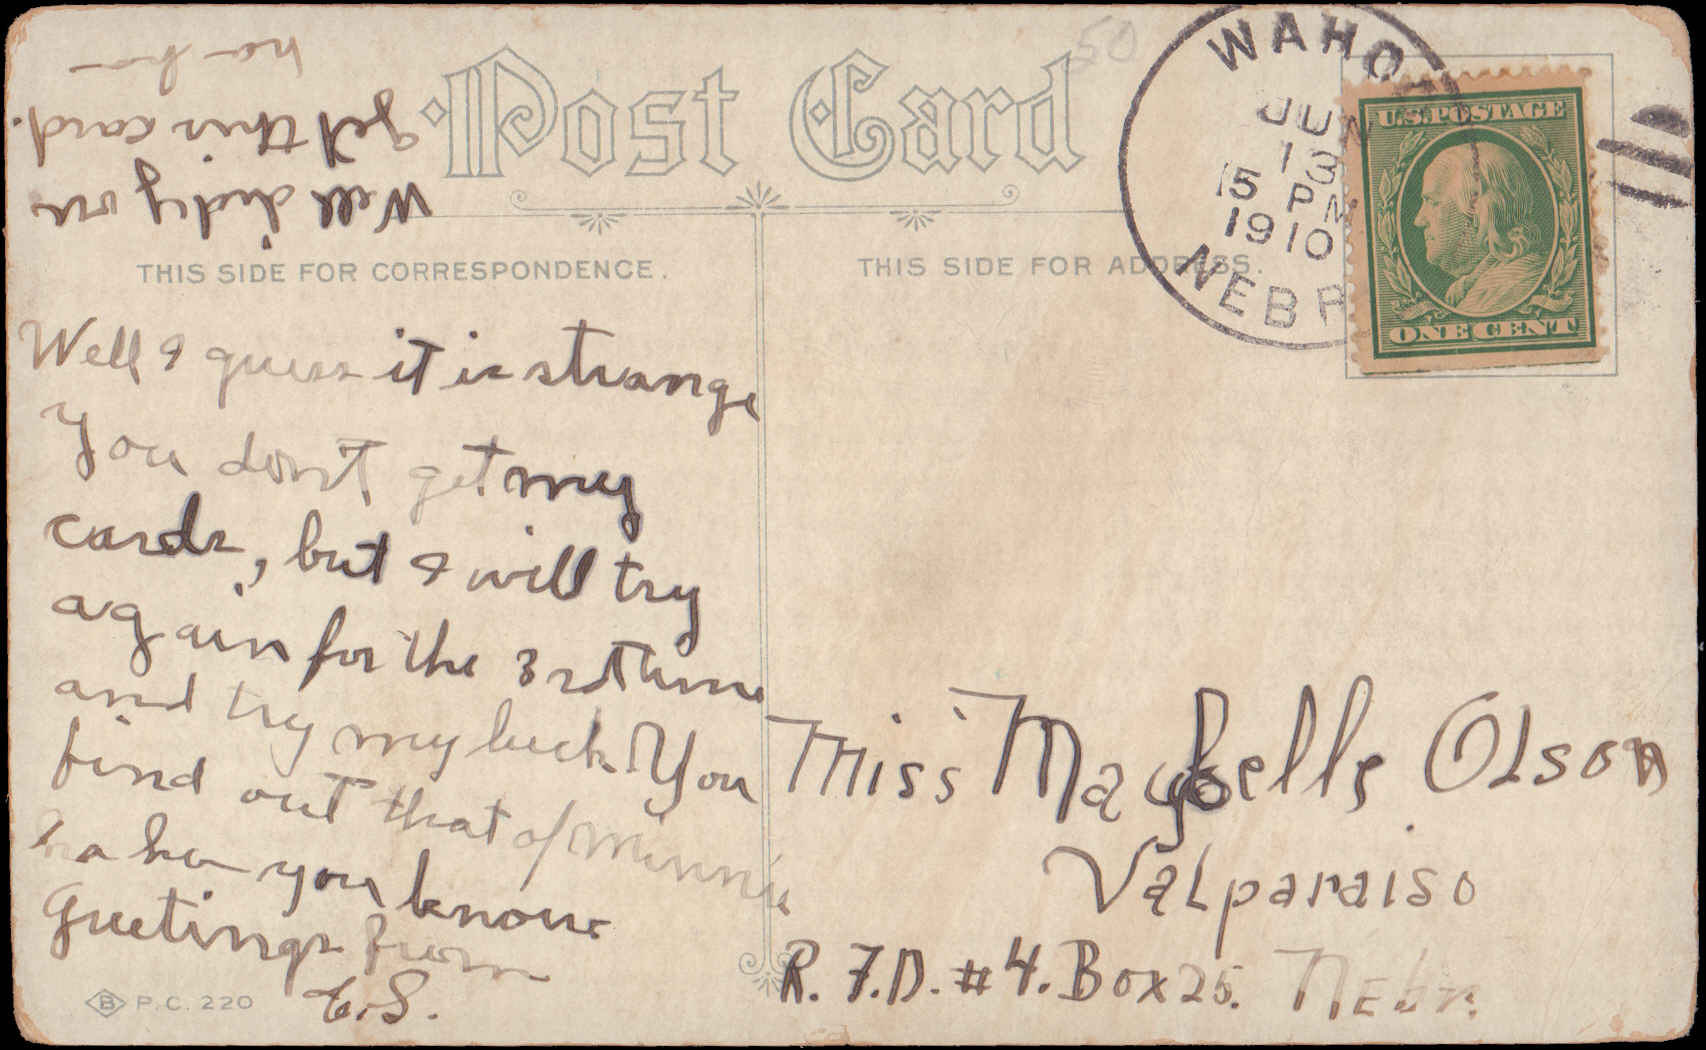 Post Card
THIS SIDE FOR CORRESPONDENCE.
THIS SIDE FOR ADDRESS.
WAHOO
JUN
13
15 PM
1910
NEBR
U.S. POSTAGE
ONE CENT
50
Well I guess it is strange
You don't get my
cards, but I will try
again for the 3rd time
and try my luck. You
find out that of Minnie
ha ha you know
Greetings from
E.S.
Well did you
get this card.
ha ha
Miss Maybelle Olson
Valparaiso
R.F.D. #4. Box 25. Nebr.
B P.C. 220